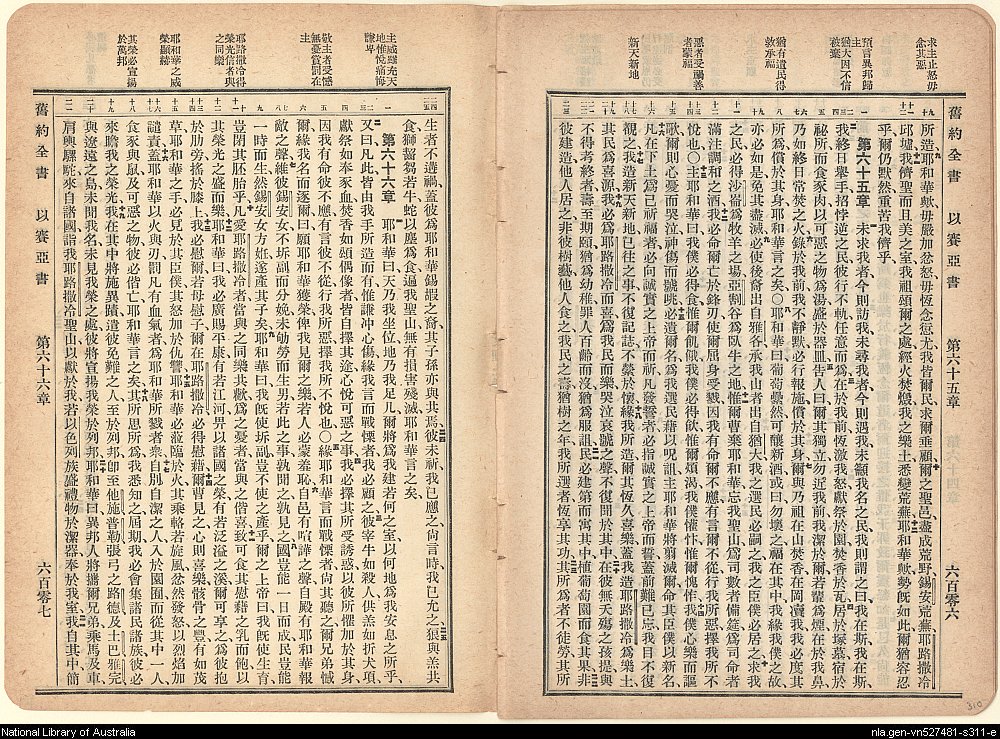 求主止怒毋
念其惡
預言異邦歸
主
猶大因不信
被棄
猶有遺民得
救承福
惡者受禍善
者蒙福
新天新地
舊約全書 以賽亞書 第六十五章 六百零六
所造耶和華歟毋嚴加忿怒毋恆念愆尤我皆爾民求爾垂顧爾之聖邑盡成荒野錫安荒蕪耶路撒冷
邱墟我儕聖而且美之室我祖頌爾之處經火焚燬我之樂土悉變荒蕪耶和華歟勢旣如此爾猶容忍
乎爾仍默然重苦我儕乎
第六十五章 未求我者今則訪我未尋我者今則遇我未籲我名之民我則謂之曰我在斯我在斯
我終日舉手招悖逆之民彼行不軌任意而爲在於我前恆激我怒獻祭於園焚香於瓦居於塚墓宿於
秘所而食豕肉以可惡之物爲湯盛於器皿告人曰爾其獨立勿近我前我潔於爾若輩爲煙在於我鼻
乃如終日常焚之火錄於我前我不靜默必行報施償於其身爾與乃祖在山焚香在岡瀆我我必度其
所爲償於其身耶和華言之矣〇耶和華曰葡萄纍然可釀新酒或曰勿壞之福在其中我緣我僕之故
亦必如是免其盡滅必使後裔出自雅各承我山者出自猶大我之選民必嗣之我之臣僕必居之求我
之民必得沙崙爲牧羊之場亞割谷爲臥牛之地惟爾曹棄耶和華忘我聖山爲司數者備筵爲司命者
滿注調和之酒我必命爾亡於鋒刃使爾屈身受戮因我有命爾不應有言爾不從行我所惡擇我所不
悅也〇主耶和華曰我僕必得食惟爾飢餓我僕必得飲惟爾煩渴我僕懽忭惟爾愧怍我僕心樂而謳
歌爾則心憂而哭泣神傷而號咷必遺爾名爲我選民藉以呪詛主耶和華將翦滅爾命其臣僕以新名
凡在下土爲己祈福者必向誠實之上帝而祈凡發誓者必指誠實之上帝而誓蓋前難已忘我目不復
觀之我造新天新地已往之事不復記誌不縈於懷緣我所造爾其恆久喜樂蓋我造耶路撒冷爲樂土
其民爲喜源我必爲耶路撒冷而喜爲我民而樂哭泣哀號之聲不復聞於其中在彼無夭殤之孩提與
不得考終者壽至期頤猶爲幼稚罪人百齡而沒猶爲見詛服民必建第而寓其中植葡萄園而食其果非
彼建造他人居之非彼樹藝他人食之我民之壽猶樹之年我所選者恆享其功其所爲者不徒勞其
主威雖充天
地惟悅痛悔
謙卑
敬主者受憾
無憂賞罰在
主
耶路撒冷得
榮光信者與
之同樂
耶和華之威
榮顯赫
其榮必宣揚
於萬邦
生者不遘禍蓋彼爲耶和華錫嘏之裔其子孫亦與其焉彼未祈我已應之尙言時我已允之狼與羔共
食獅齧芻若牛蛇以塵爲食遍我聖山無有損害殘滅耶和華言之矣
第六十六章 耶和華曰天乃我坐位地乃我足几爾將爲我建若何之室以何地爲我安息之所乎
又曰凡此皆由我手所造而有惟謙冲心傷緣我言而戰慄者我必顧之彼宰牛如殺人供羔如折犬項
獻祭如奉豕血焚香如頌偶像者皆自擇其途心悅可惡之事我必擇其所受誘惑以彼所懼加於其身
因我有命彼不應有言彼不從行我所惡擇我所不悅也〇緣耶和華言而戰慄者尙其聽之爾兄弟憾
緣我名而逐爾曰願耶和華獲榮俾我見爾樂若人必蒙羞恥自邑有喧譁之聲自殿有耶和華報
敵之聲維彼錫安女不坼副而分娩未劬勞而生男若此之事孰聞之孰見之國豈能一日而成民豈能
一時而生然錫安女方姙遂產其子矣耶和華曰我旣使坼副豈不使之產乎爾之上帝曰我旣使生育
豈閉其胚胎乎凡愛耶路撒冷者當與之同樂共歡爲之憂者當與之偕喜致可食其慰藉之乳而飽以
其榮光之盛而樂耶和華曰我必廣賜平康有若江河畀以諸國之榮有若泛溢之溪爾可享之爲彼抱
於肋旁搖於膝上我必慰爾若母慰子爾在耶路撒冷必得慰藉爾曹見之心則喜樂骸骨之豐有如茂
草耶和華之手必見於其臣僕其怒加於仇讐耶和華必涖臨於火其乘輅若旋風忿然發怒以烈焰加
譴責蓋耶和華以火與刃罰凡有血氣者爲耶和華所戮者衆自別自潔之人入於園囿而從其中一人
食豕與鼠及可惡之物彼必偕亡耶和華言之矣其所思所爲我悉知之屆期我必會集諸民諸族彼必
來瞻我之榮光我在其中將施異蹟遣彼免難之人至於列邦卽至他施普勒張弓之路德及土巴雅完
與遼遠之島未聞我名未見我榮之處彼將宣揚我榮於列邦耶和華曰異邦人將攜爾兄弟乘馬及車
肩輿騾駝來自諸國詣我耶路撒冷聖山以獻於我若以色列族盛禮物於潔器奉於我室我自其中簡
舊約全書 以賽亞書 第六十六章 六百零七
310
National Library of Australia
nla.gen-vn527481-s311-e